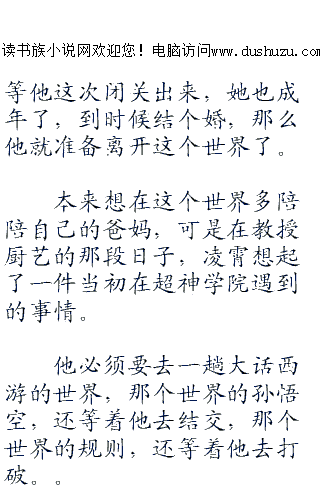 读书族小说网欢迎您！电脑访问www.dushuzu.com
等他这次闭关出来，她也成
年了，到时候结个婚，那么
他就准备离开这个世界了。
本来想在这个世界多陪
陪自己的爸妈，可是在教授
厨艺的那段日子，凌霄想起
了一件当初在超神学院遇到
的事情。
他必须要去一趟大话西
游的世界，那个世界的孙悟
空，还等着他去结交，那个
世界的规则，还等着他去打
破。。